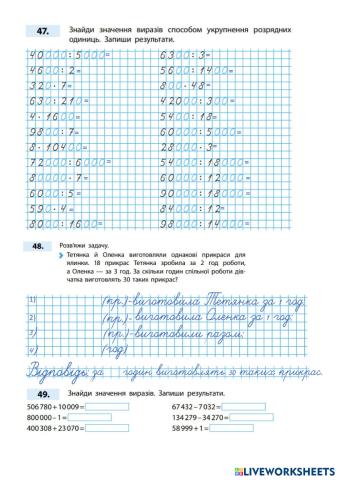 47. Знайди значення виразів способом укрупнення розрядних
одиниць. Запиши результати.
40000:5000= 6300:3=
4600:2= 5600:1400=
320·7= 800·48=
630:210= 42000:300=
4·1600= 5400:18=
9800:7= 60000:5000=
8·10400= 28000·3=
72000:6000= 54000:18000=
80000·7= 60000:12000=
6000:5= 90000:18000=
590·4= 84000:12=
8000:1600= 98000:14000=
48. Розв'яжи задачу.
Тетянка й Оленка виготовляли однакові прикраси для
ялинки. 18 прикрас Тетянка зробила за 2 год роботи,
а Оленка — за 3 год. За скільки годин спільної роботи дів-
чатка виготовляють 30 таких прикрас?
1) (пр.)-виготовила Тетянка за 1 год;
2) (пр.)-виготовила Оленка за 1 год;
3) (пр.)-виготовили разом;
4) (год)
Відповідь: за годин виготовлять 30 таких прикрас.
49. Знайди значення виразів. Запиши результати.
506 780 + 10 009 = 67 432 – 7 032 =
800 000 – 1 = 134 279 – 34 270 =
400 308 + 23 070 = 58 999 + 1 =
LIVEWORKSHEETS